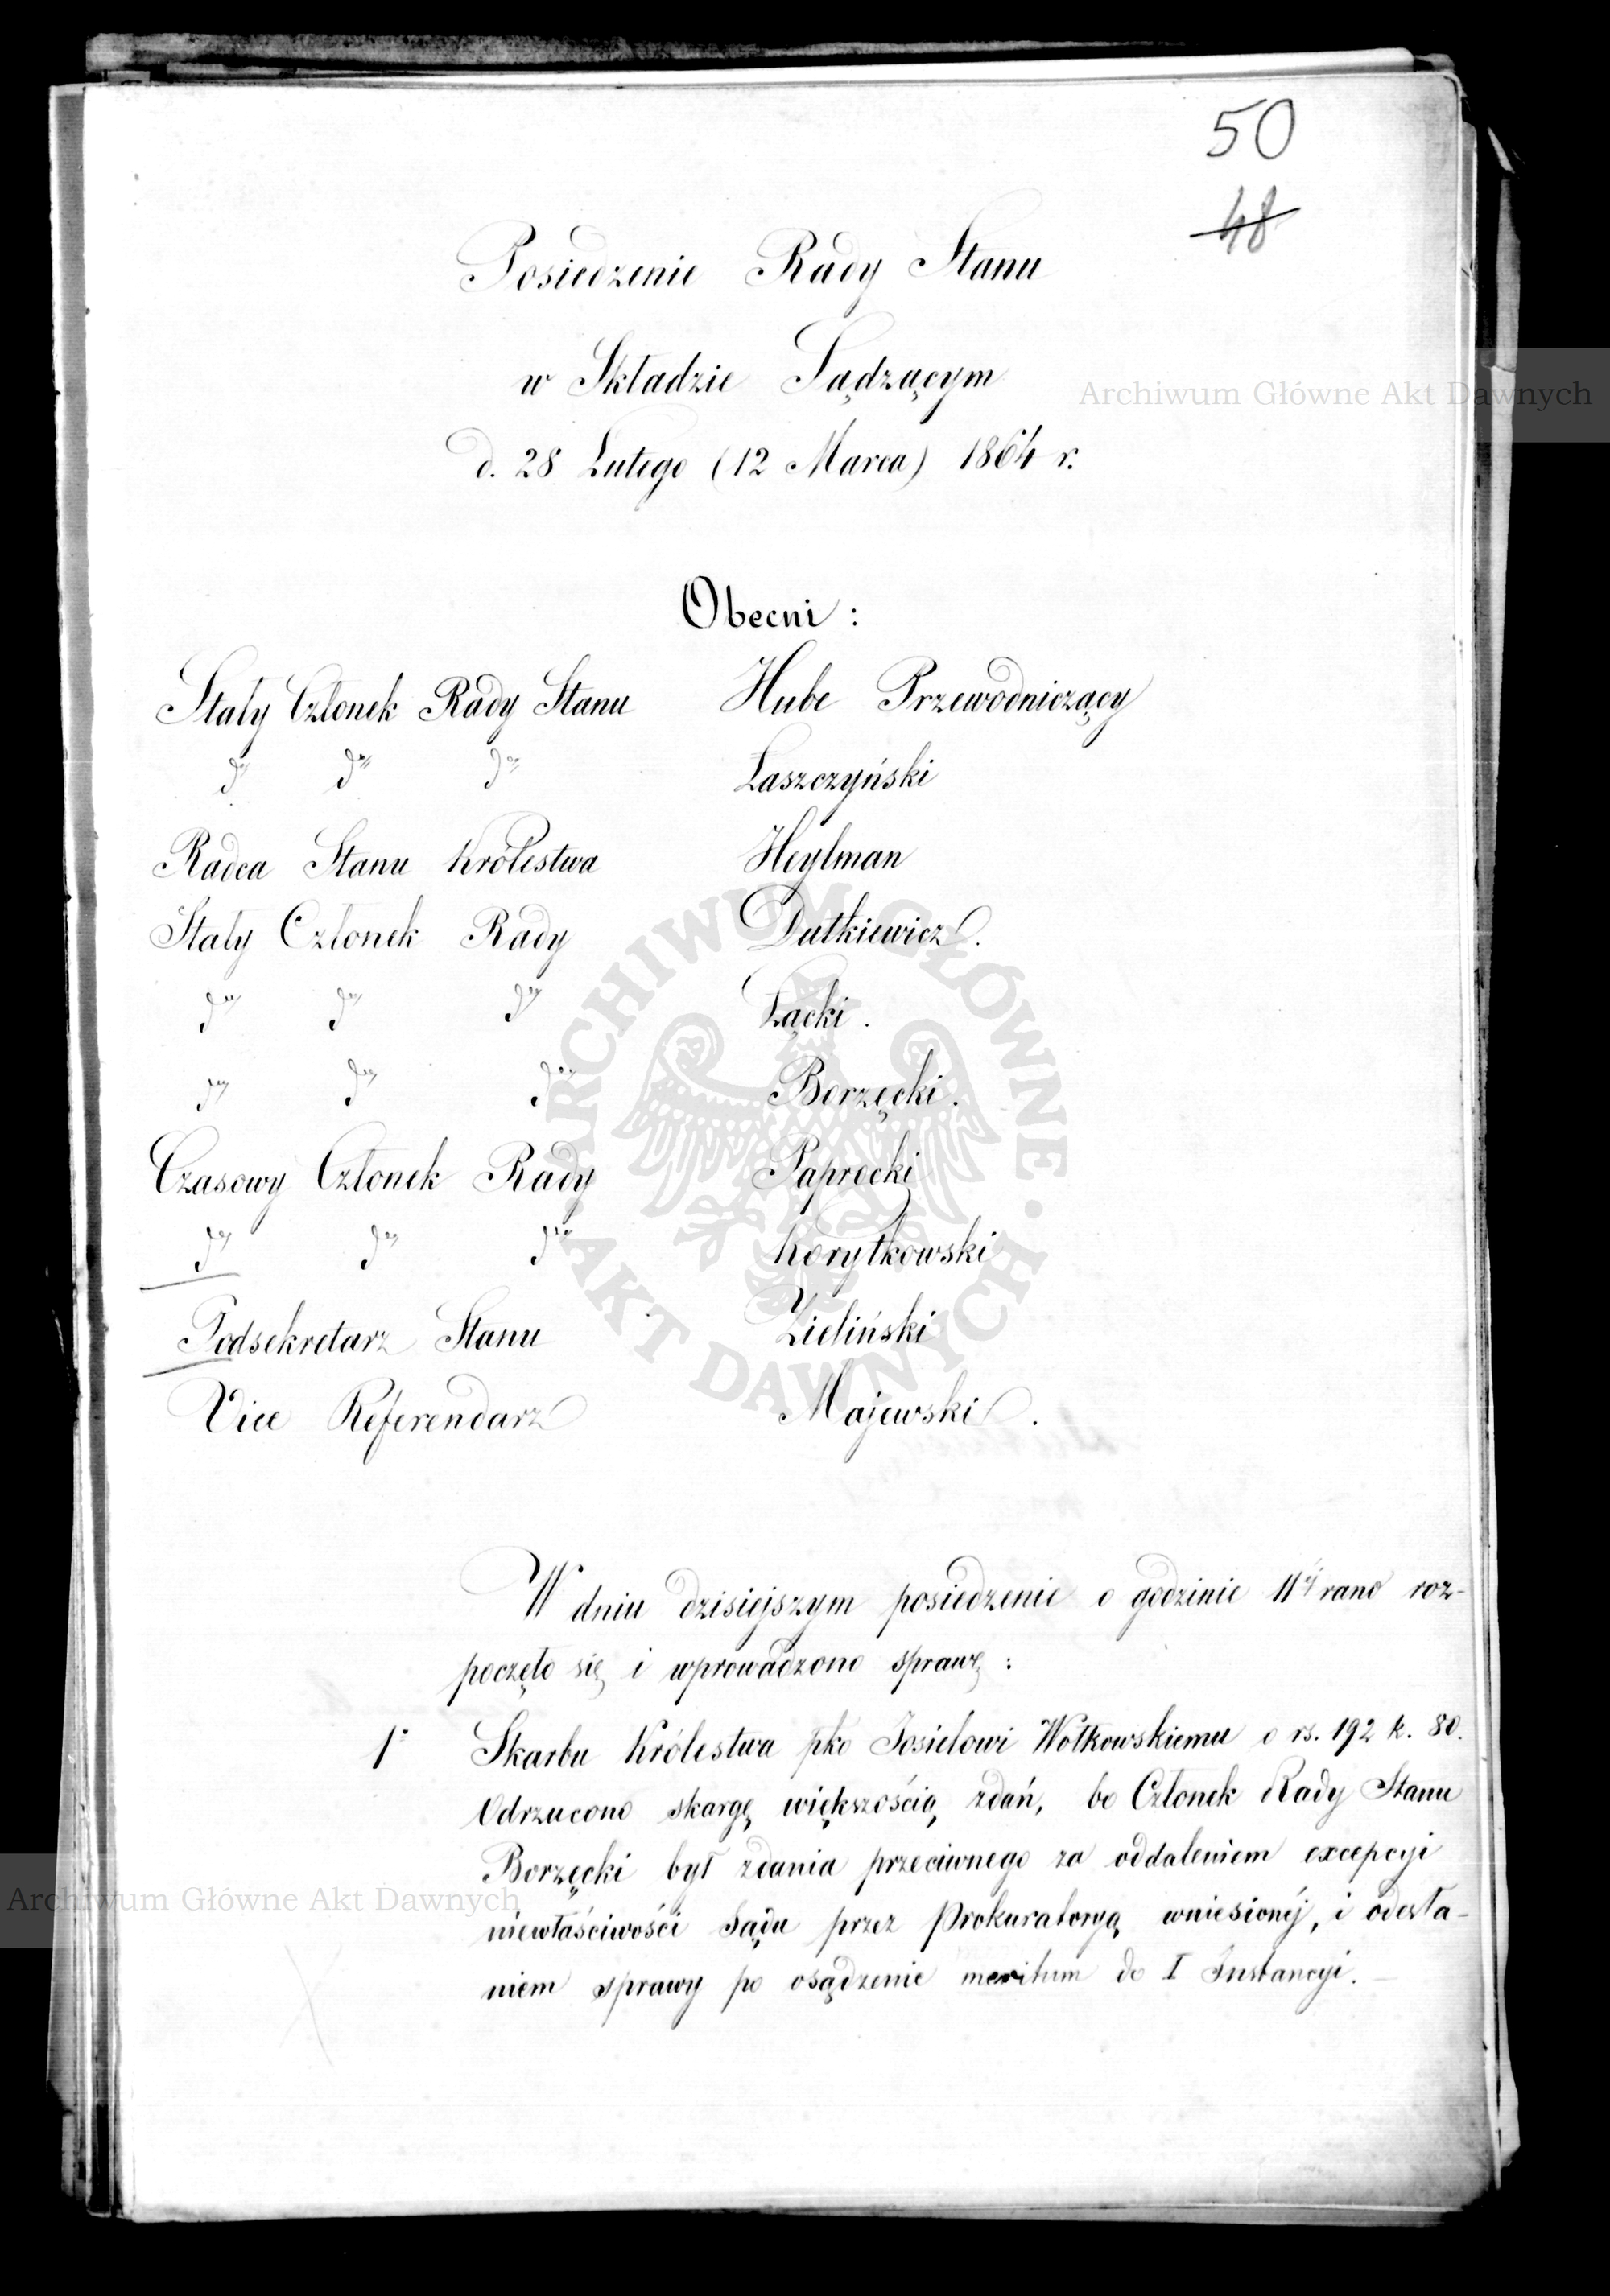 50
48
Posiedzenie Rady Stanu
w Składzie Sądzącym
d. 28 Lutego (12 Marca) 1864 r.
Obecni :
Stały Członek Rady Stanu Hube Przewodniczący
Łaszczyński
Radca Stanu Królestwa Heylman
Stały Członek Rady Dutkiewicz.
Łącki.
Borzęcki.
Czasowy Członek Rady Paprocki
Korytkowski
Podsekretarz Stanu Zieliński
Vice Referendarz Majewski.
W dniu dzisiejszym posiedzenie o godzinie 11éj rano roz-
poczęto się i wprowadzono sprawę :
1° Skarbu Królestwa pko Josielowi Wołkowskiemu o rs. 192 k. 80.
Odrzucono skargę większością zdań, bo Członek Rady Stanu
Borzęcki był zdania przeciwnego za oddaleniem excepcyi
niewłaściwości Sądu przez Prokuratoryą wniesionéj, i odesła-
niem sprawy po osądzenie meritum do I Instancyi.
Archiwum Główne Akt Dawnych
Archiwum Główne Akt Dawnych
ARCHIWUM GŁÓWNE · AKT DAWNYCH ·